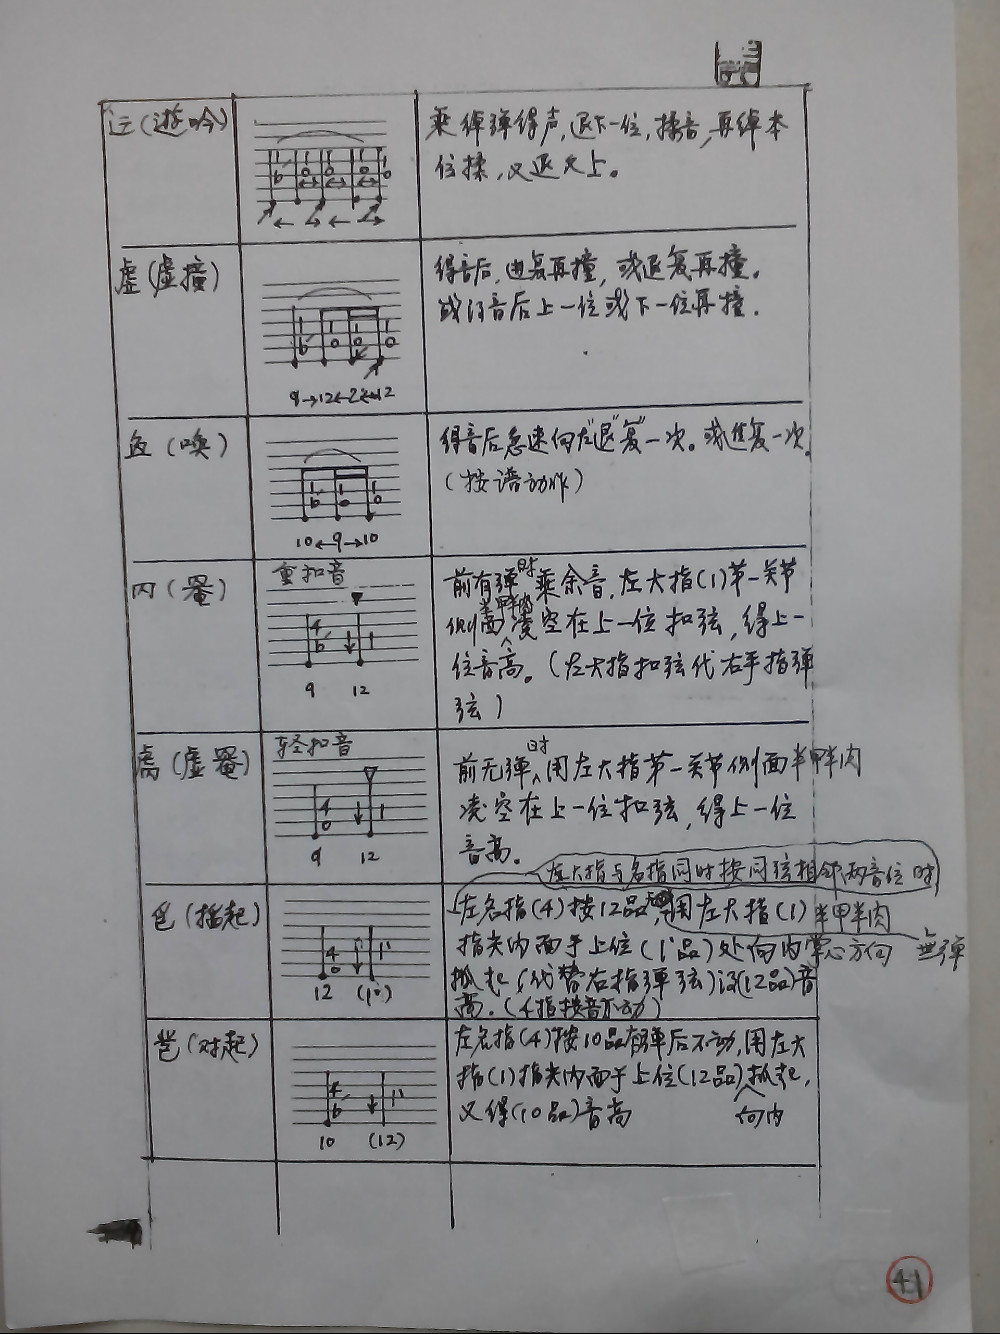 (遊吟)
乘绰弹得声,退下一位,揉音,再绰本
位揉,又退又上。
虚(虚撞)
得音后,进复再撞,或退复再撞。
或得音后上一位或下一位再撞.
9→12
12
(唤)
得音后急速向左"退""复"一次。或进复一次.
(按谱动作)
10←9→10
重扣音
(罨)
前有弹时乘余音,左大指(1)第一关节
侧面半甲半肉凌空在上一位扣弦,得上一
位音高。(左大指扣弦代右手指弹
弦)
9 12
轻扣音
(虚罨)
前无弹时,用左大指第一关节侧面半甲半肉
凌空在上一位扣弦,得上一位
音高。
9 12
左大指与名指同时按同弦相邻两音位时
(掐起)
左名指(4)按12品,用左大指(1)半甲半肉
指尖内面于上位处向内掌心方向 無弹
抓起(代替右指弹弦)得(12品)音
高.(4指按音不动)
12
(对起)
左名指(4)按10品有弹后不动,用左大
指(1)指尖内面于上位(12品)向内抓起,
又得(10品)音高
10 (12)
41